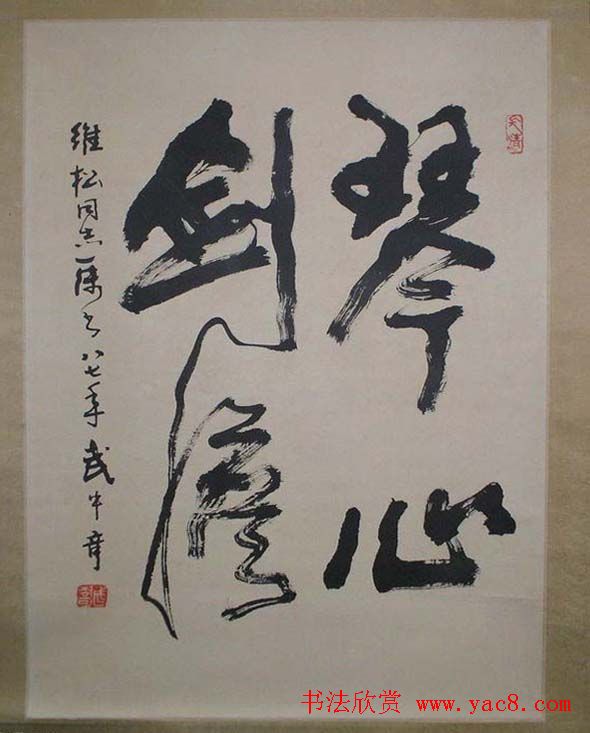 琴心
剑膽
維松同志 八七年 武中奇
书法欣赏 www.yac8.com